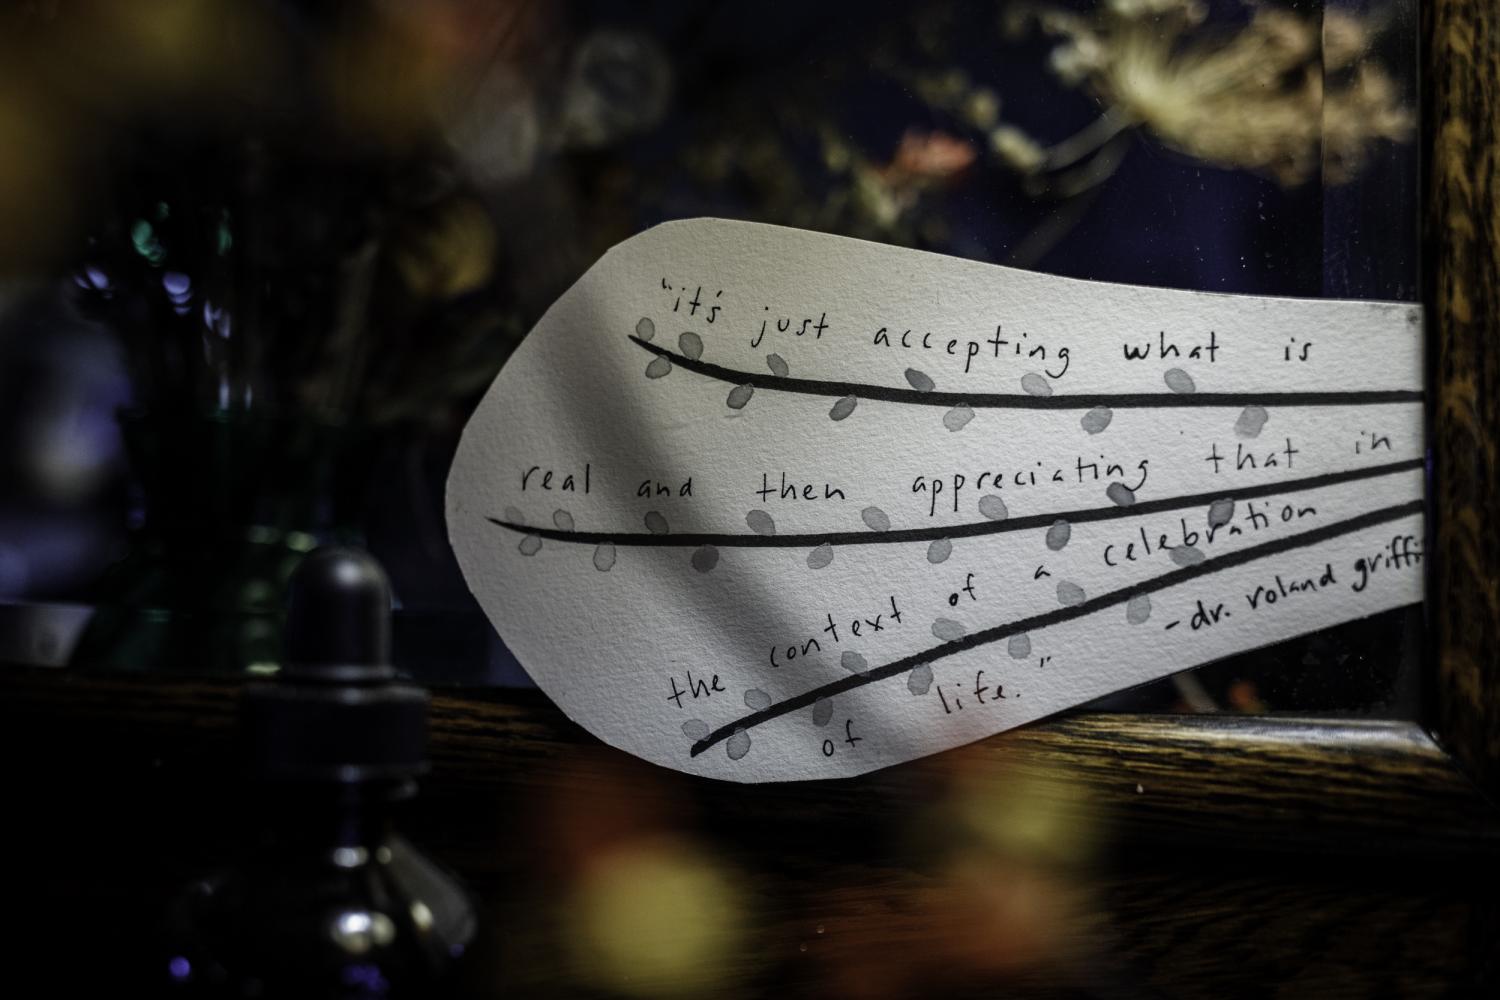 "it's just accepting what is
real and then appreciating that in
the context of a celebration
of life."
-dr. roland